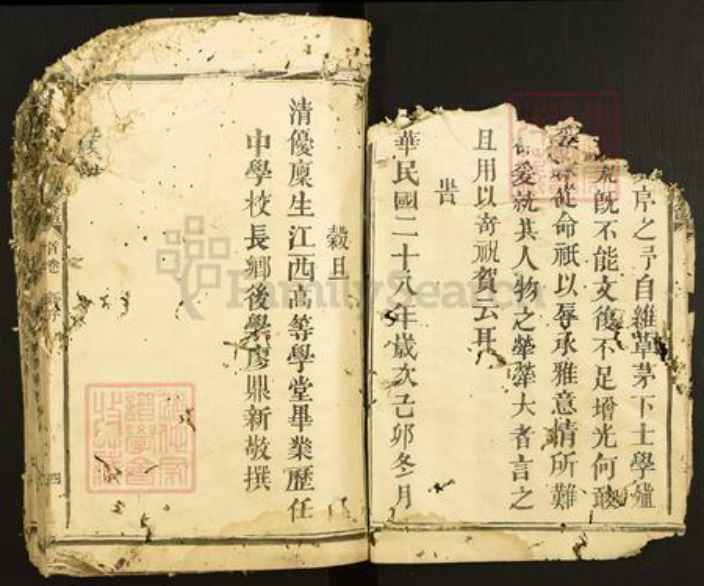 序之子自維草茅下士學殖
既不能文復不足增光何敢
從命祇以辱承雅意情所難
爰就其人物之犖犖大者言之
且用以寄祝賀云耳
旹
華民國二十八年歲次己卯冬月
穀旦
清優廩生江西高等學堂畢業歷任
中學校長鄉後學廖鼎新敬撰
首卷
四
FamilySearch